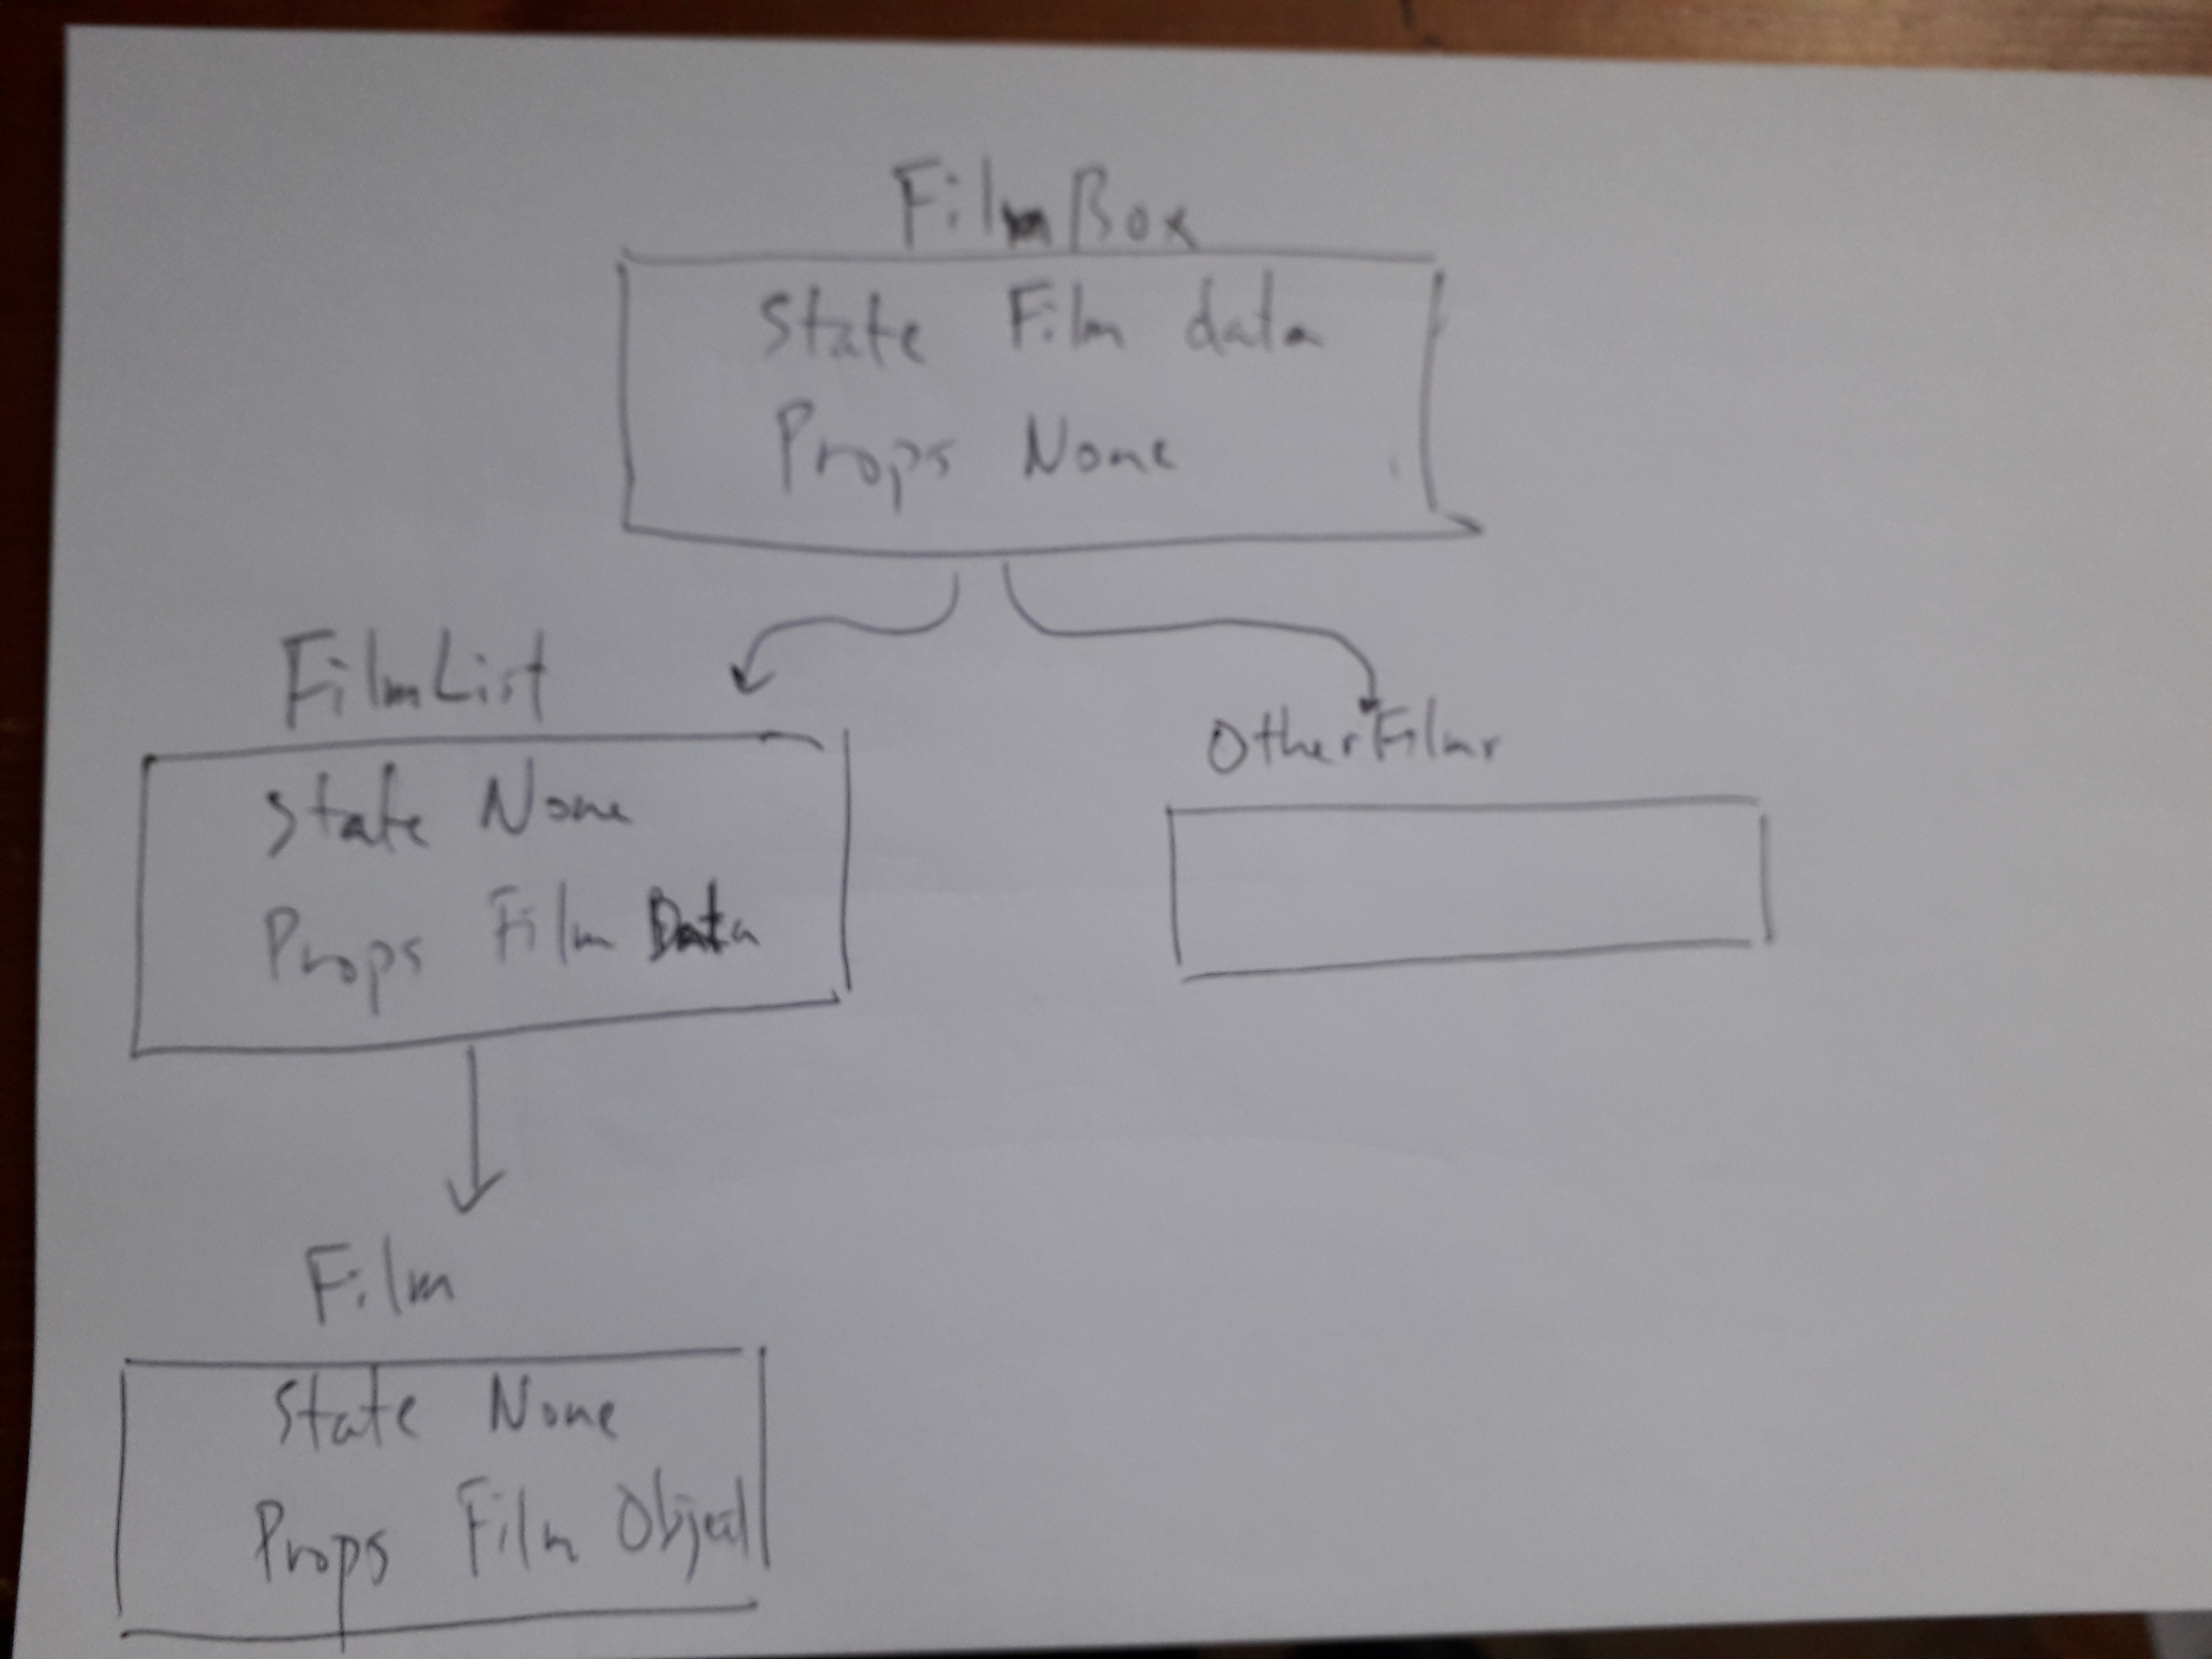 FilmBox
State Film data
Props None
FilmList
State None
Props Film Data
OtherFilms
Film
State None
Props Film Object